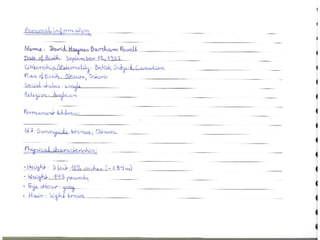 Personal information
Name: David Haynes Barnham Powell
Date of Birth: September 14, 1922
Citizenship/Nationality: British Subject/Canadian
Place of Birth: Ottawa, Ontario
Social status: single
Religion: Anglican
Permanent Address
Sunnyside Avenue, Ottawa
Physical characteristics
- Height: 5 feet
- Weight: pounds
- Eye colour: grey
- Hair: light brown